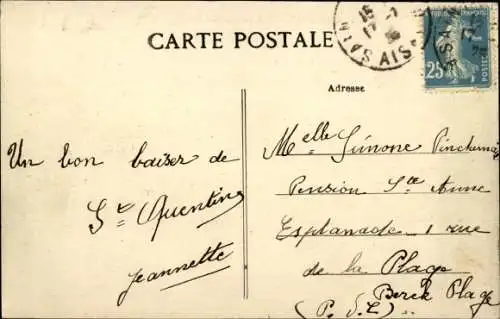 CARTE POSTALE
AIS
25
Adresse
Un bon baiser de
St Quentin
Jeannette
Melle Simone
Pension Ste Anne
Esplanade 1 rue
de la Plage
Berck Plage
(P. d. C)